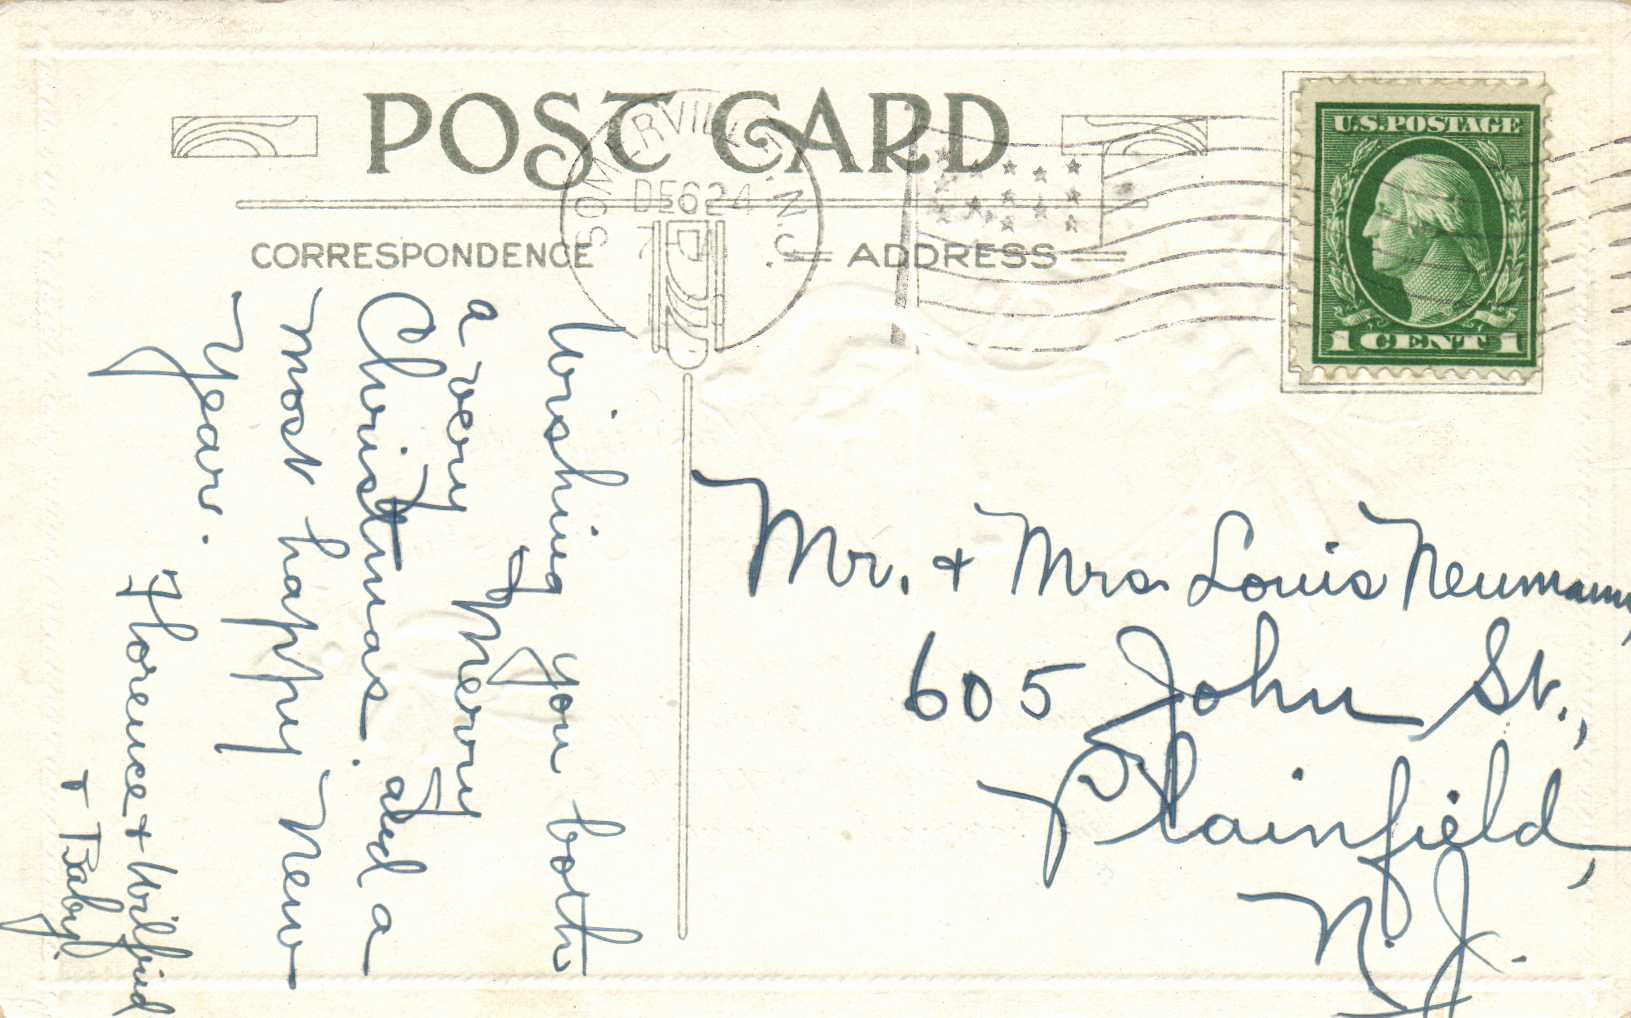 POST CARD
SOMERVILLE, N.J.
DE 6 24
7
CORRESPONDENCE
ADDRESS
U.S. POSTAGE
1 CENT 1
Wishing you both
a very Merry
Christmas. and a
most happy New
Year.
Florence + Wilfrid
+ Baby.
Mr. + Mrs. Louis Neumann,
605 John St.,
Plainfield,
N. J.